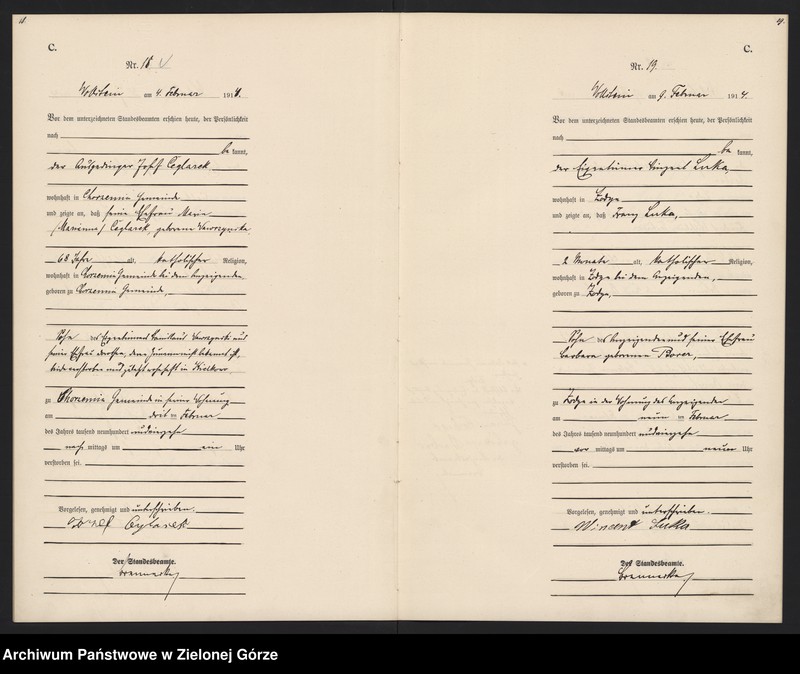 C.
Nr. 18
Wollstein am 4. Februar 1914.
Vor dem unterzeichneten Standesbeamten erschien heute, der Persönlichkeit
nach
be kannt,
der Ausgedinger Josef Ceglarek
wohnhaft in Chorzemin Gemeinde
und zeigte an, daß seine Ehefrau Marie
(Marianna) Ceglarek, geborene
68 Jahr alt, katholischer Religion,
wohnhaft in Chorzemin Gemeinde bei dem Anzeigenden
geboren zu Chorzemin Gemeinde,
des Eigentümers und
seiner Ehefrau
verstorben und zuletzt wohnhaft in
zu Chorzemin Gemeinde in seiner Wohnung
am drit ten Februar
des Jahres tausend neunhundert undvierzehn
nach mittags um ein Uhr
verstorben sei.
Vorgelesen, genehmigt und unterschrieben.
Josef Ceglarek
Der Standesbeamte.
C.
Nr. 19.
Wollstein am 9. Februar 1914.
Vor dem unterzeichneten Standesbeamten erschien heute, der Persönlichkeit
nach
be kannt,
der Eigentümer Vinzent Liska,
wohnhaft in Zodyn
und zeigte an, daß Franz Liska,
2 Monate alt, katholischer Religion,
wohnhaft in Zodyn bei dem Anzeigenden,
geboren zu Zodyn,
Sohn des Anzeigenden und seiner Ehefrau
Barbara geborenen
zu Zodyn in der Wohnung des Anzeigenden
am neun ten Februar
des Jahres tausend neunhundert undvierzehn
vor mittags um neun Uhr
verstorben sei.
Vorgelesen, genehmigt und unterschrieben.
Wincent Liska
Der Standesbeamte.
Archiwum Państwowe w Zielonej Górze